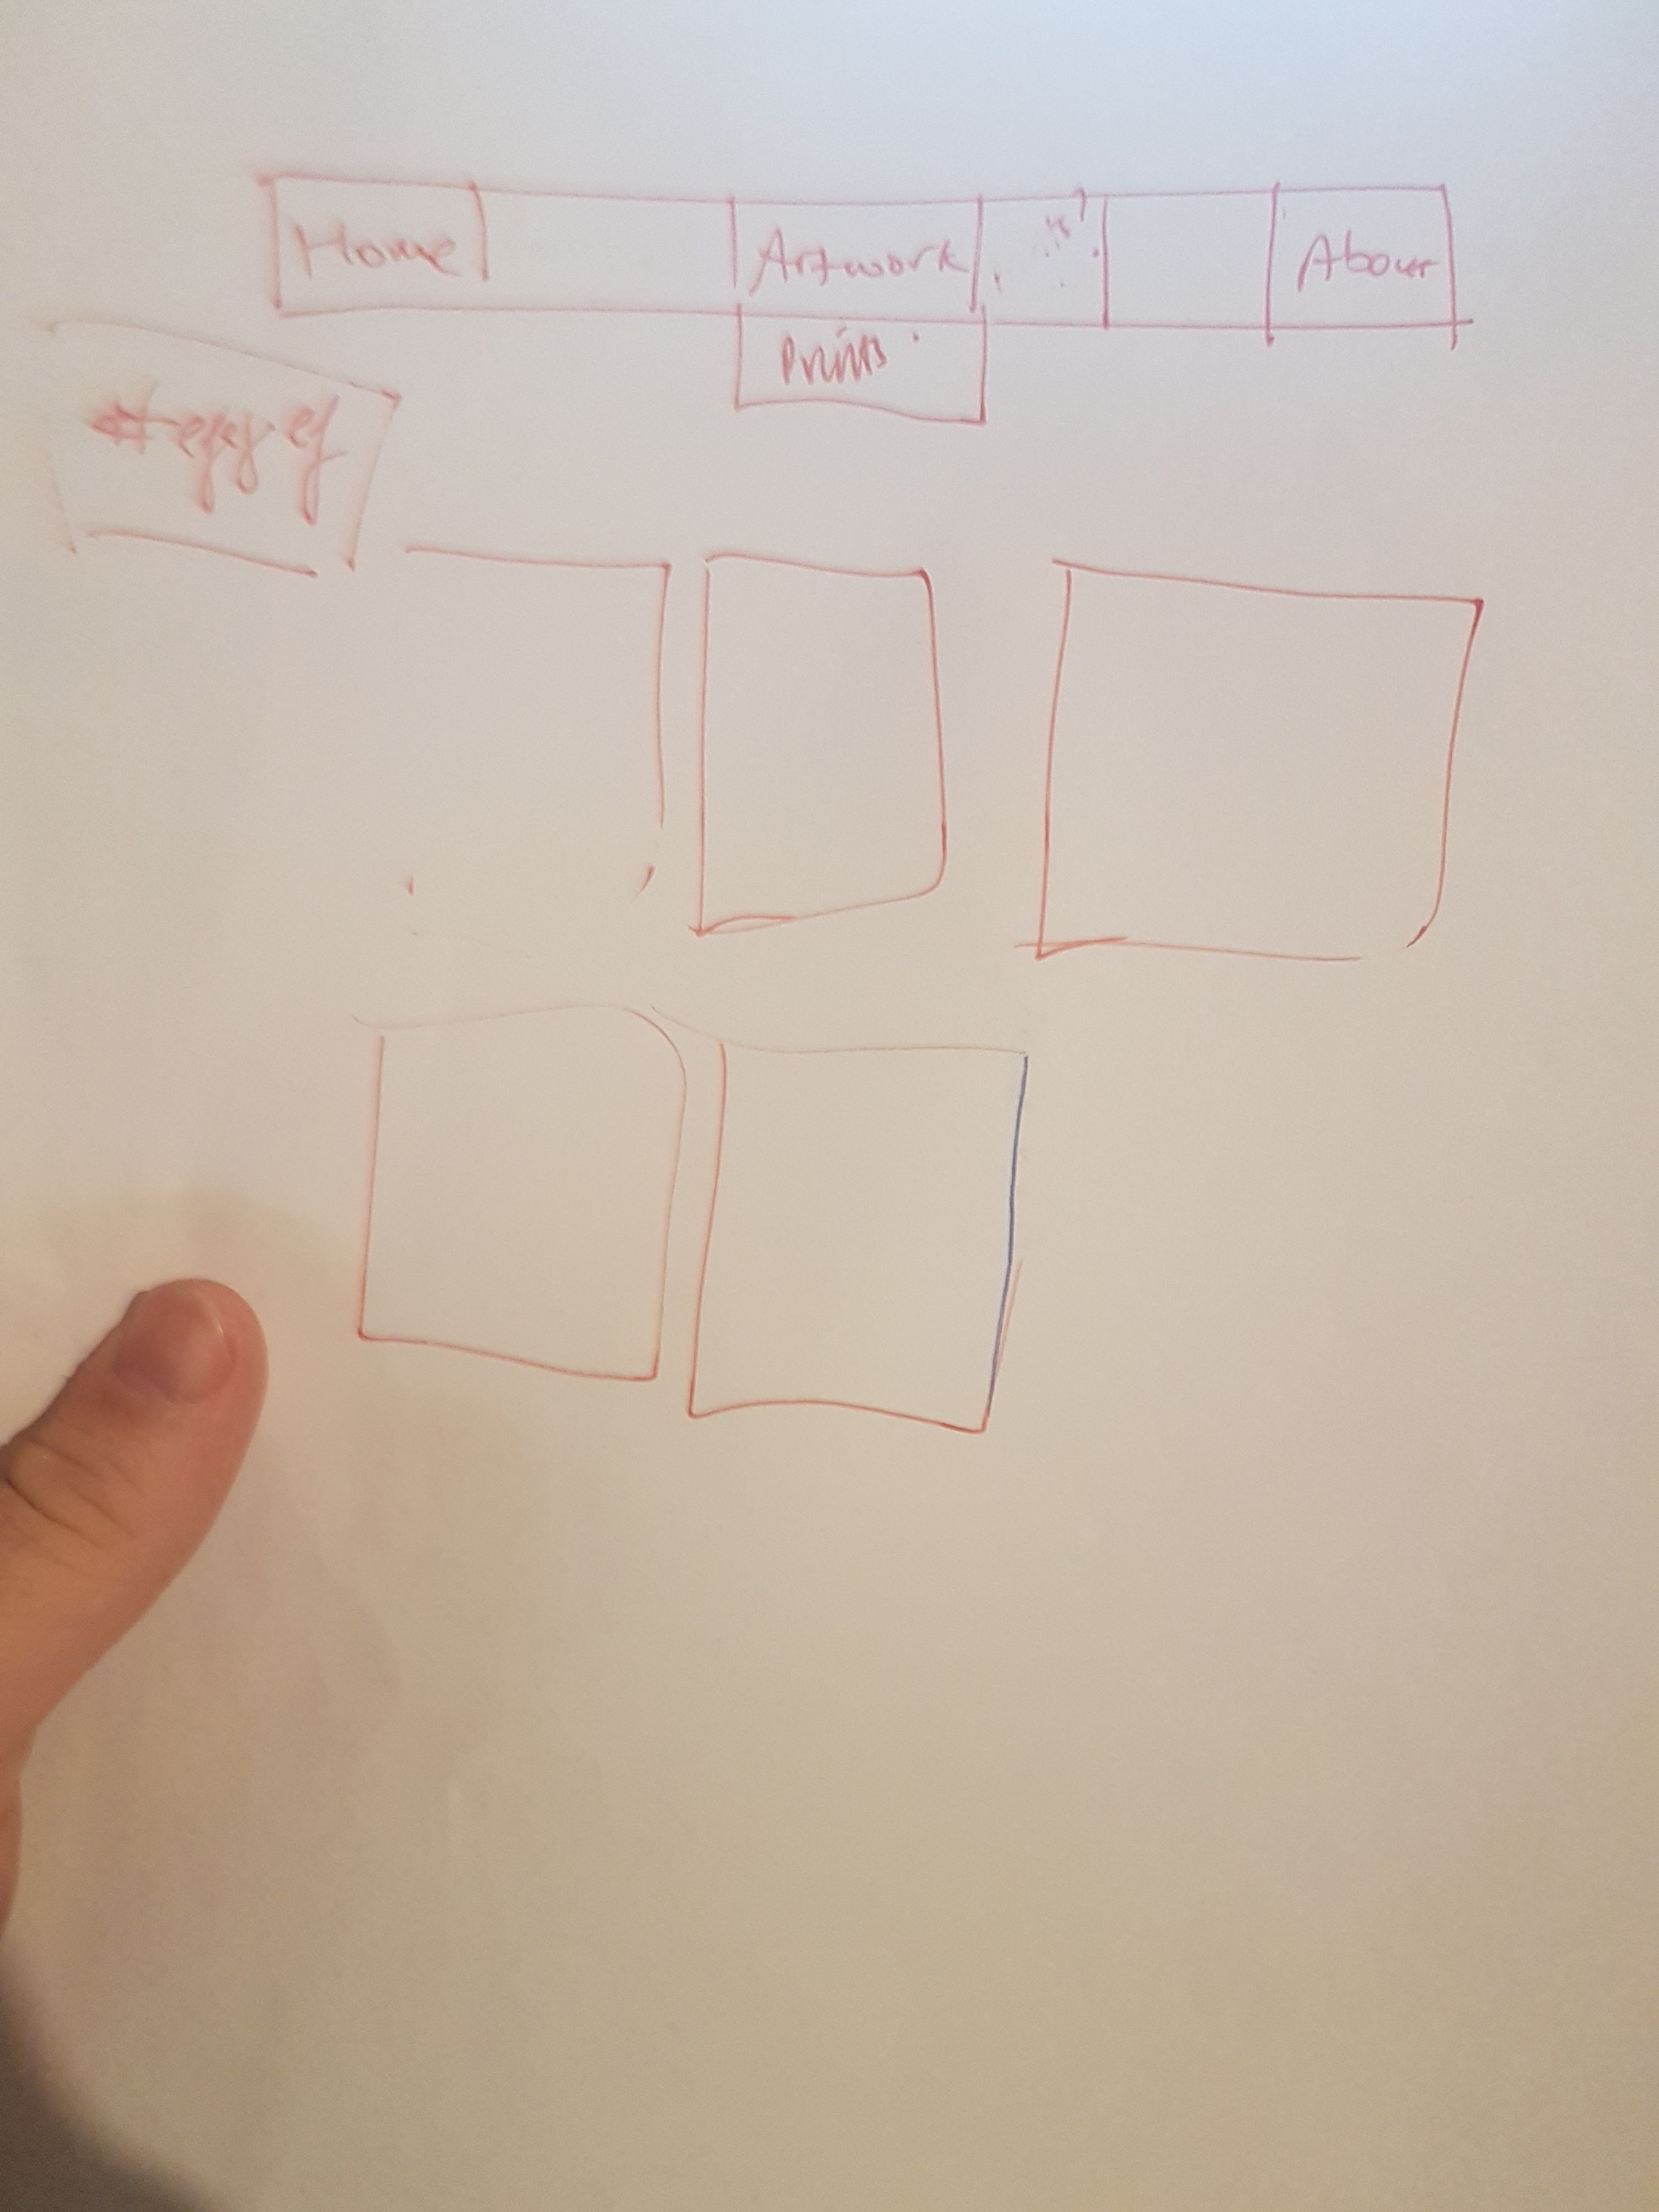 Home Artwork About
Prints